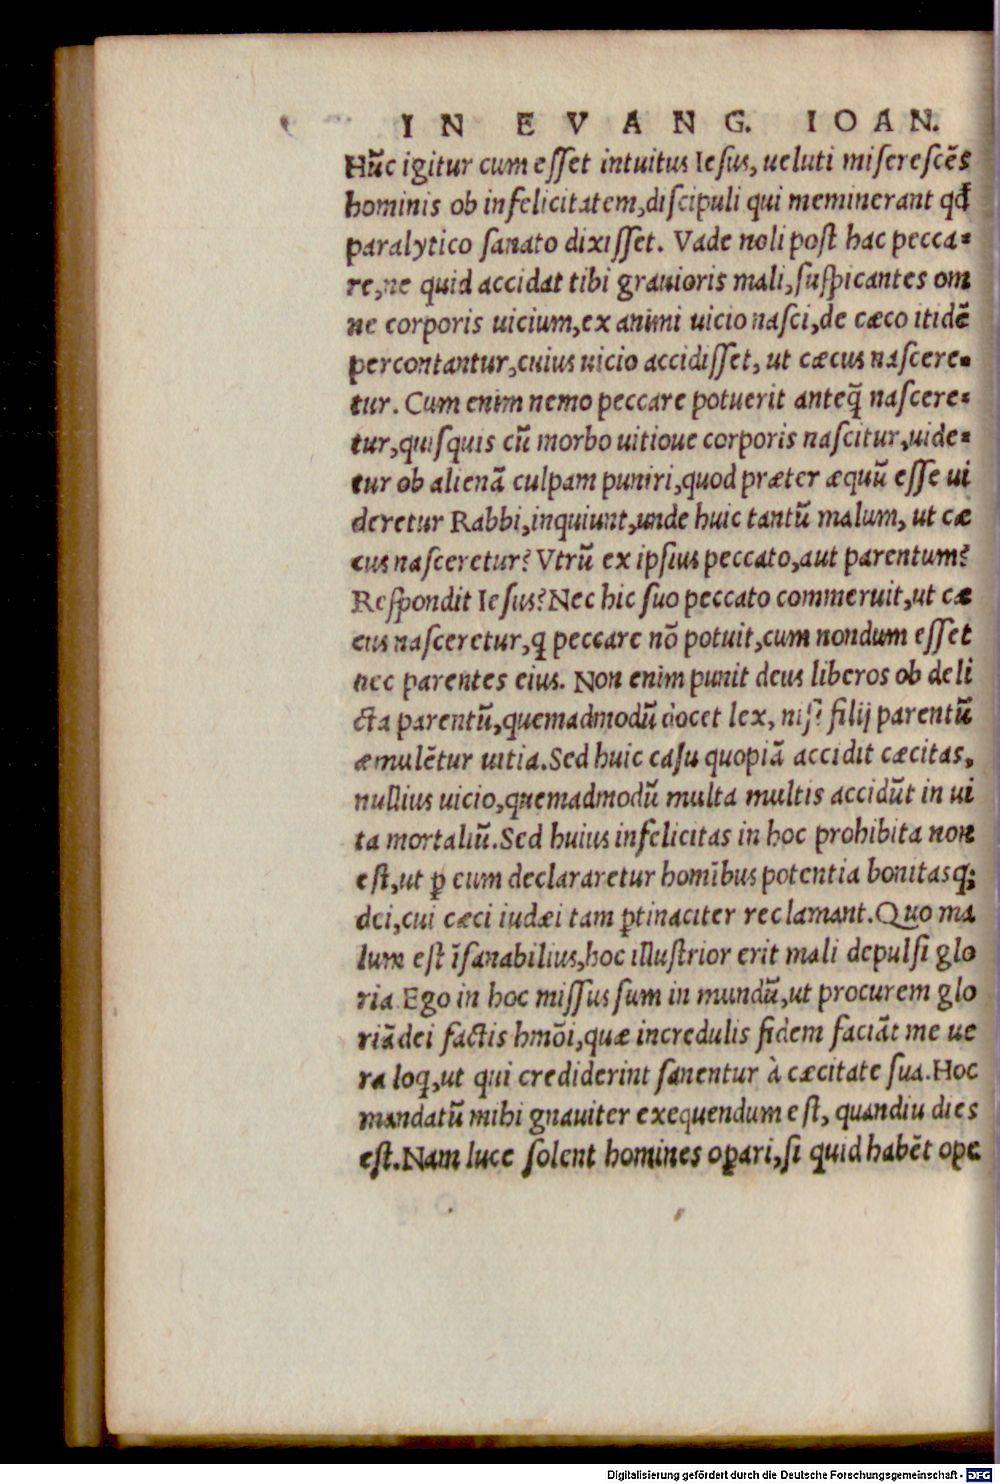 IN EVANG. IOAN.
Hũc igitur cum esset intuitus Iesus, ueluti miserescẽs
hominis ob infelicitatem,discipuli qui meminerant qđ
paralytico sanato dixisset. Vade noli post hac pecca⸗
re,ne quid accidat tibi grauioris mali,suspicantes om
ne corporis uicium,ex animi uicio nasci,de cæco itidẽ
percontantur,cuius uicio accidisset, ut cæcus nascere⸗
tur. Cum enim nemo peccare potuerit anteq̃ nascere⸗
tur,quisquis cũ morbo uitioue corporis nascitur,uide⸗
tur ob alienã culpam puniri,quod præter æquũ esse ui
deretur Rabbi,inquiunt,unde huic tantũ malum, ut cæ
cus nasceretur? Vtrũ ex ipsius peccato,aut parentum?
Respondit Iesus? Nec hic suo peccato commeruit,ut cæ
cus nasceretur,ꝗ peccare nõ potuit,cum nondum esset
nec parentes eius. Non enim punit deus liberos ob deli
cta parentũ,quemadmodũ docet lex, nisi filij parentũ
æmulẽtur uitia.Sed huic casu quopiã accidit cæcitas,
nullius uicio,quemadmodũ multa multis accidũt in ui
ta mortaliũ.Sed huius infelicitas in hoc prohibita non
est,ut ꝑ eum declararetur homĩbus potentia bonitasq;
dei,cui cæci iudæi tam ꝑtinaciter reclamant.Quo ma
lum est ĩsanabilius,hoc illustrior erit mali depulsi glo
ria Ego in hoc missus sum in mundũ,ut procurem glo
riã dei factis hmõi,quæ incredulis fidem faciãt me ue
ra loꝗ,ut qui crediderint sanentur à cæcitate sua.Hoc
mandatũ mihi gnauiter exequendum est, quandiu dies
est.Nam luce solent homines oꝑari,si quid habẽt ope
Digitalisierung gefördert durch die Deutsche Forschungsgemeinschaft - DFG